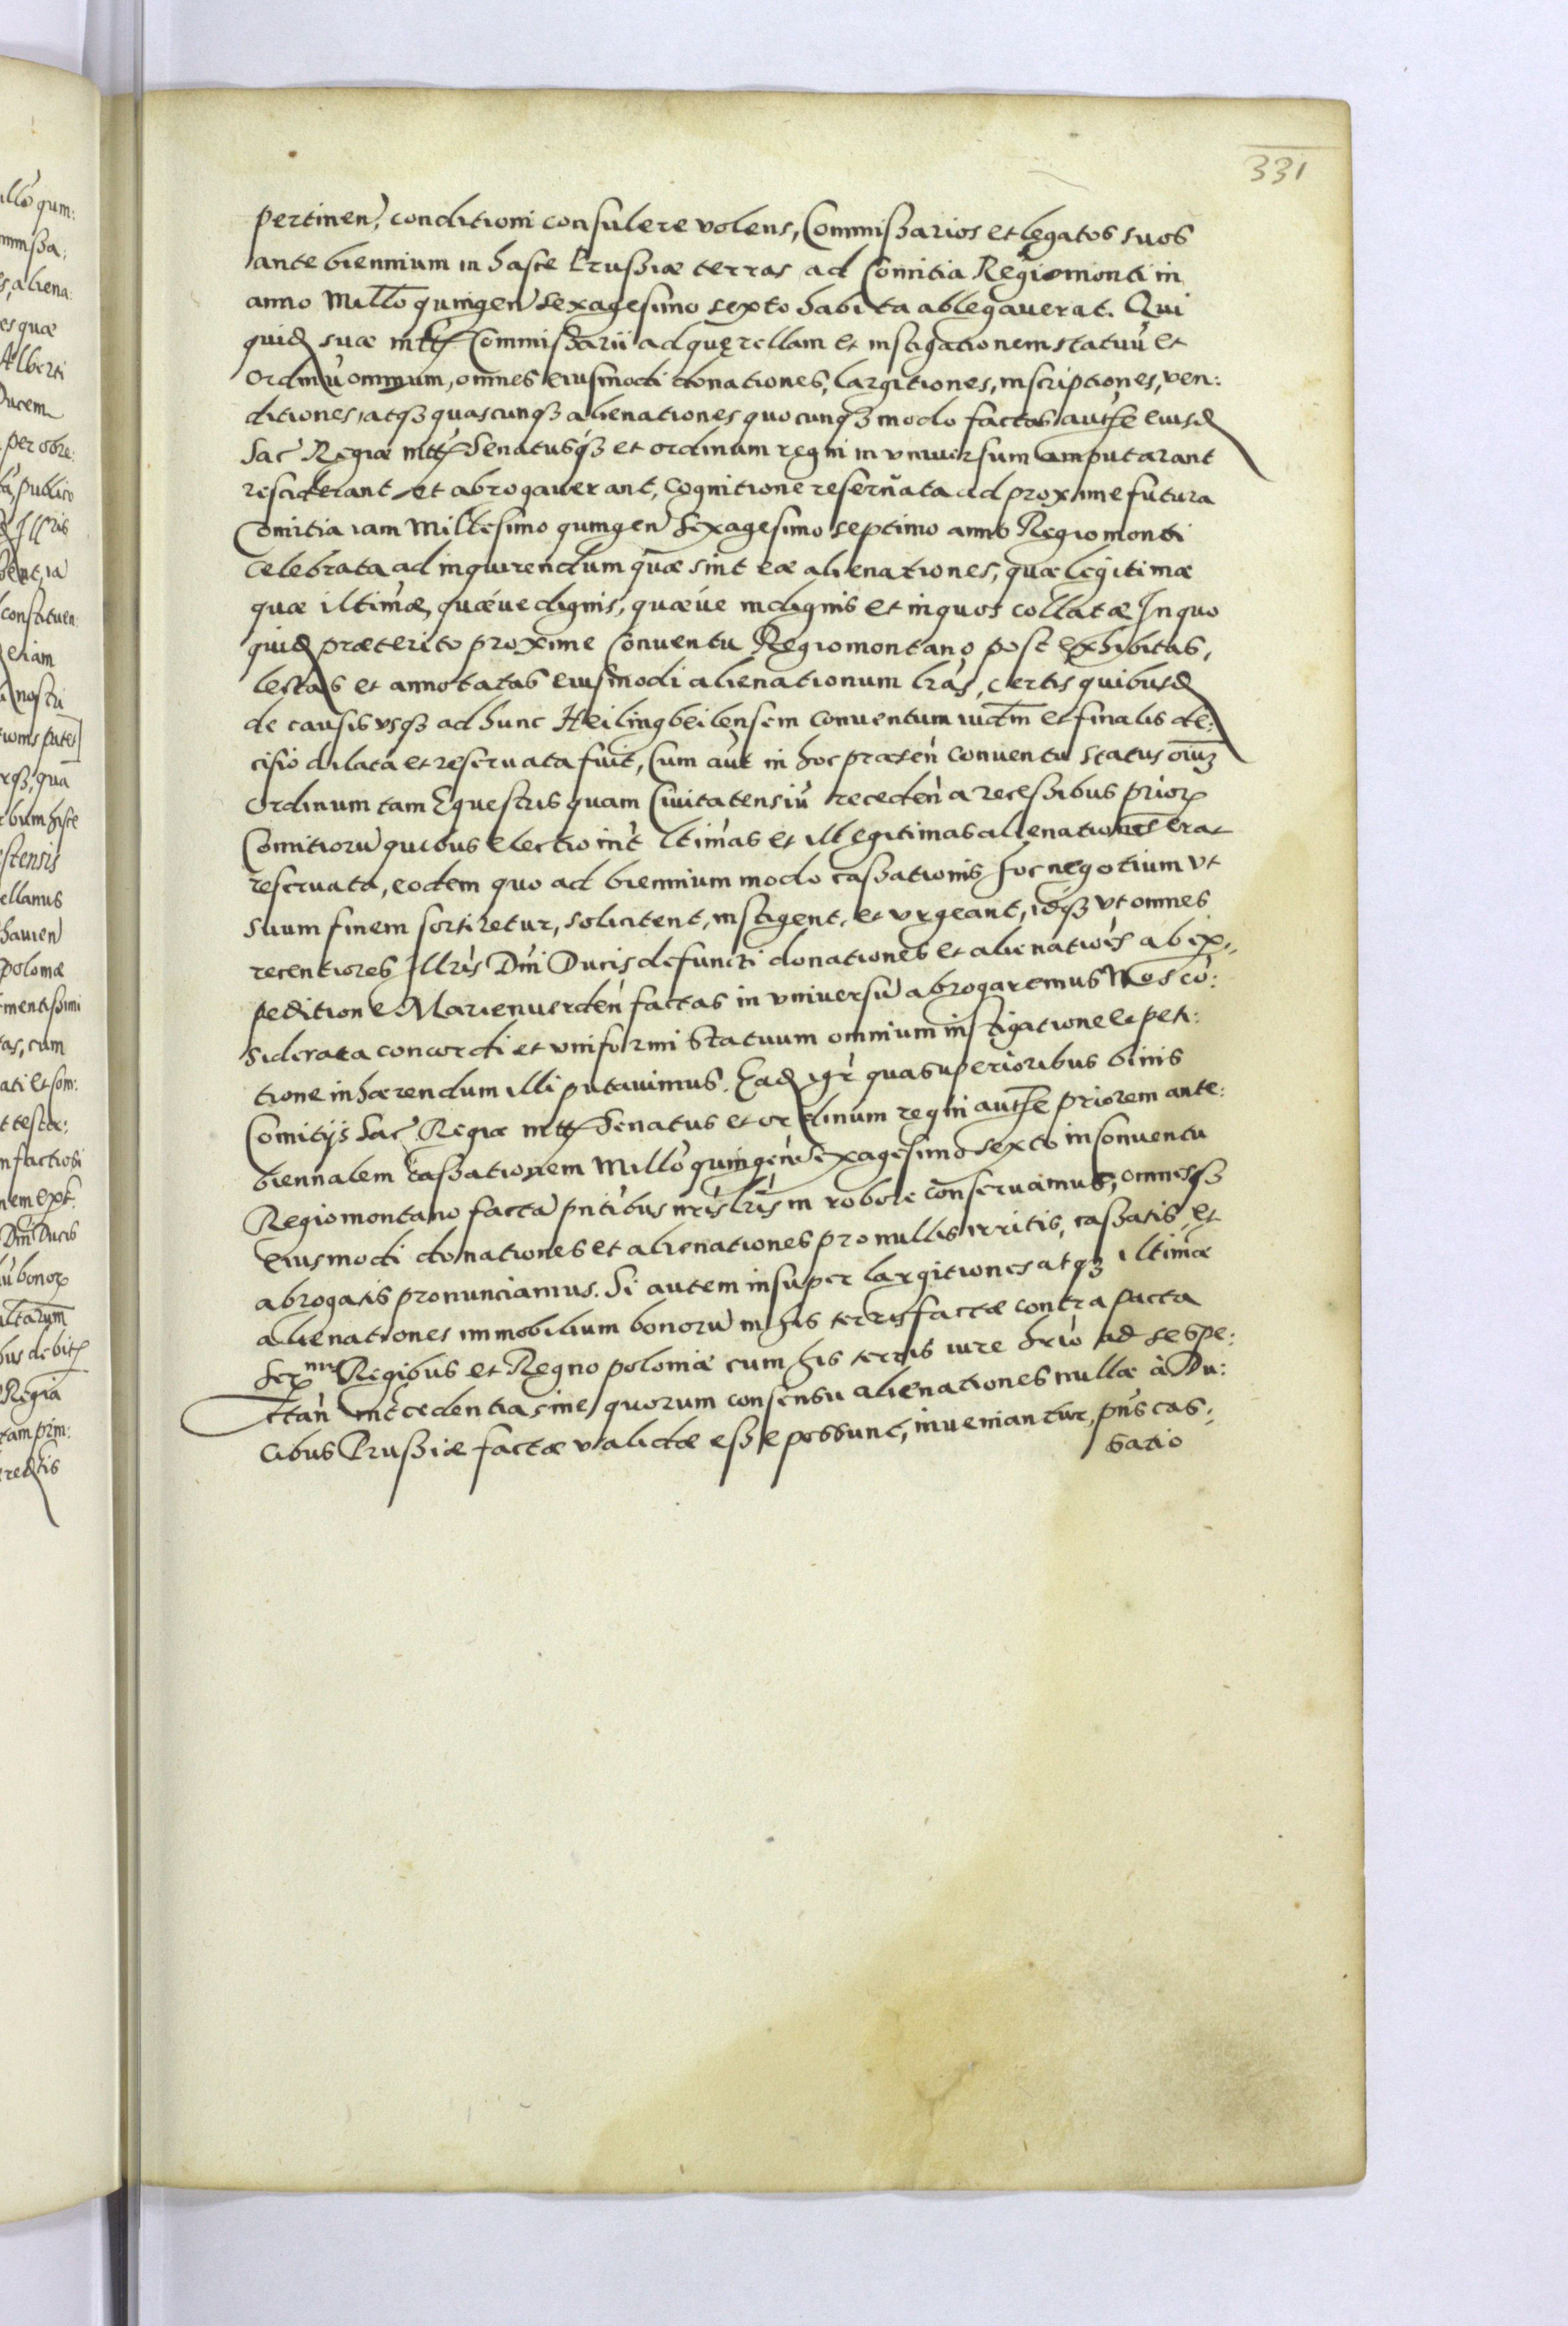 331
pertinen, conditioni consulere volens, Commissarios et legatos suos
ante biennium in hasce Prussiæ terras ad Comitia Regiomonti in
anno Millo quingen sexagesimo sexto habita ablegaverat. Qui
quid suæ mttis Commissarii ad querellam et instigationem statuū et
ordinū omnium, omnes eiusmodi donationes, largitiones, inscriptiones, ven:
ditiones, atqz quascunqz alienationes quocunqz modo factas autthe eiusd
Sac Regiæ mttis Senatusqz et ordinum regni in vniuersum amputarant
resciderant et abrogauerant, cognitione reseruata ad proxime futura
Comitia iam Millesimo quingen sexagesimo septimo anno Regiomonti
celebrata ad inquirendum quæ sint eæ alienationes, quæ legitimæ
quæ illtimæ, quæue dignis, quæue indignis et in quos collatæ In quo
quid præterito proxime Conuentu Regiomontano post exhibitas,
lectas et annotatas eiusmodi alienationum lras, certis quibusd
de causis vsqz ad hunc Heiligbeilensem Conuentum iudm et finalis de:
cisio dilata et reseruata fuit, Cum aut in hoc præsen conuentu status oiuz
Ordinum tam Equestris quam Ciuitatensiū receden a recessibus prior
Comitiorū quibus electio int ltimas et illegitimas alienationes erat
reseruata, eodem quo ad biennium modo cassationis hoc negotium vt
suum finem sortiretur, solicitent, instigent, et vrgeant, idqz vt omnes
recentiores Illris Dni Ducis defuncti donationes et alienatiois ab ex:
peditione Marienuerden factas in vniuersū abrogaremus Nos co:
siderata concordi et vniformi Statuum omnium instigatione e peti:
tione inhærendum illi putauimus. Ead igr qua superioribus binis
Comitijs Sac Regiæ mttis Senatus et ordinum regni autthe priorem ante:
biennalem cassationem Millo quingen sexagesimo sexto in Conuentu
Regiomontano facta pntibus nris lris in robore conseruamus, omnesqz
eiusmodi donationes et alienationes pro nullis irritis, cassatis et
abrogatis pronunciamus. Si autem insuper largitiones atqz illtimæ
alienationes immobilium bonorū in his terris factæ contra pacta
Ser mis Regibus et Regno poloniæ cum his terris iure hrio ad se spe:
ctan intcedentia sine quorum consensu alienationes nullæ à Du:
cibus Prussiæ factæ validæ esse possunt, inueniantur, pns cas:
satio